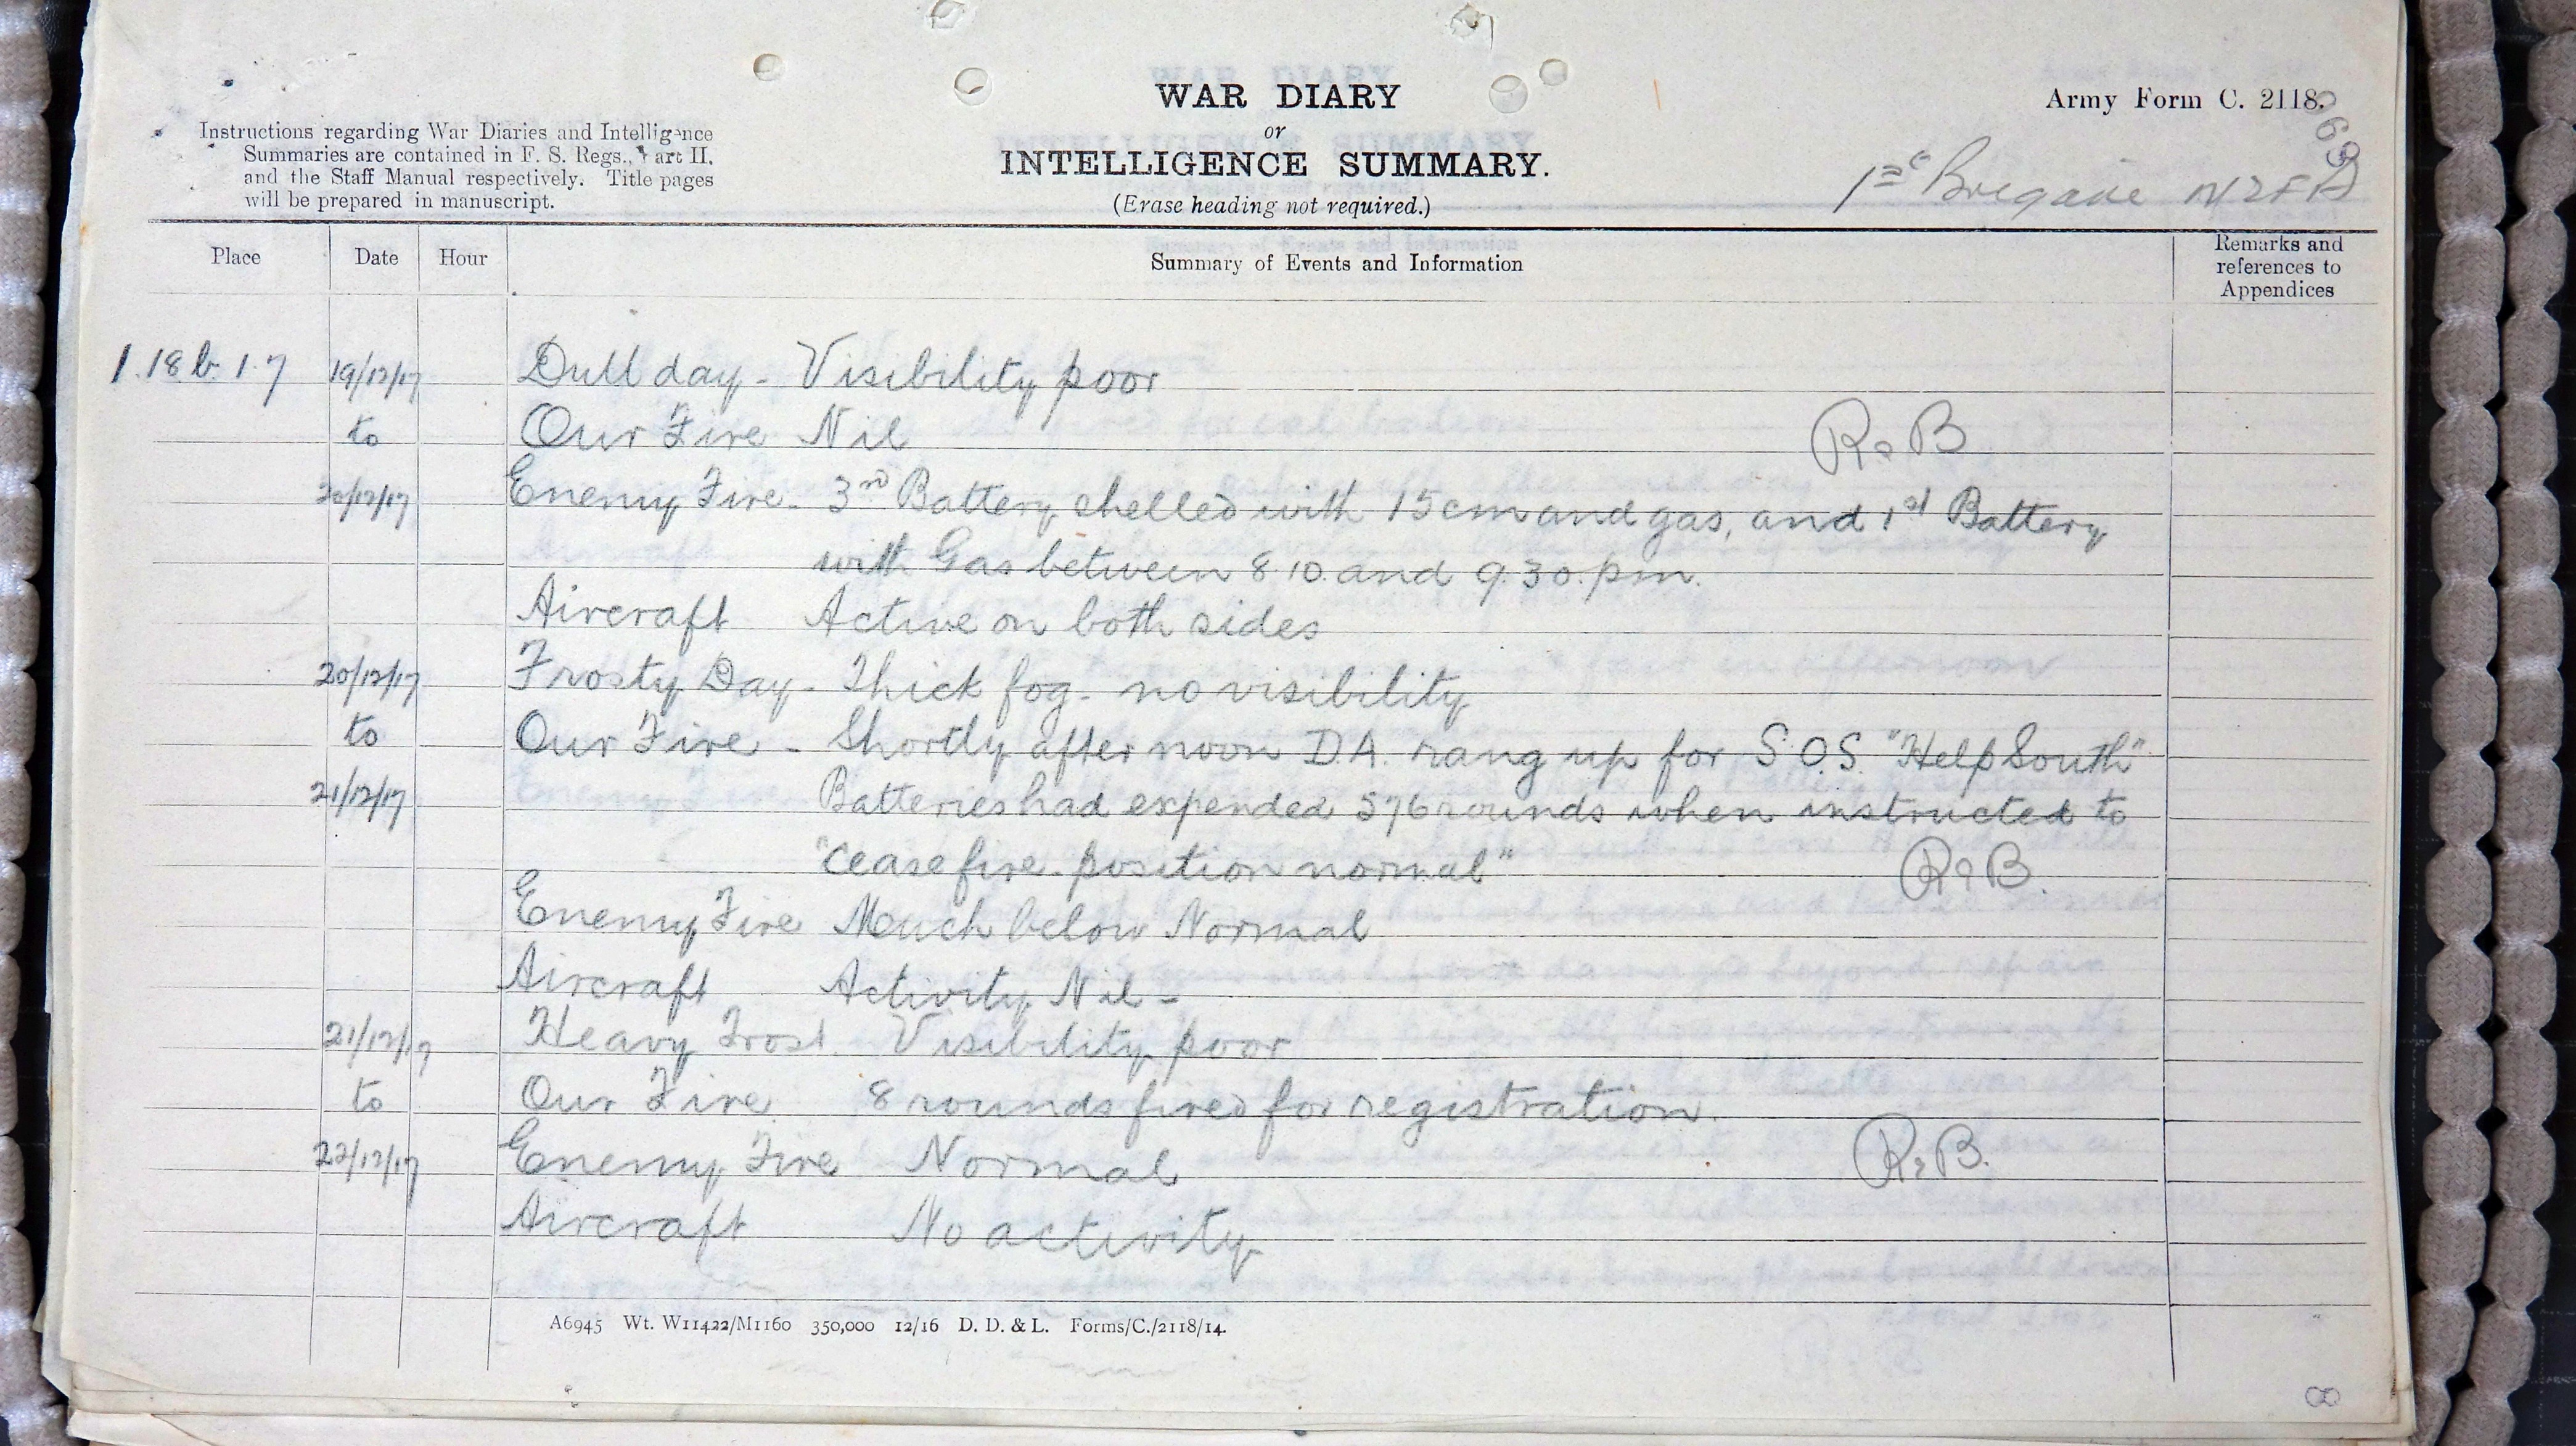 WAR DIARY
or
INTELLIGENCE SUMMARY.
(Erase heading not required.)
Army Form C. 2118.
Instructions regarding War Diaries and Intelligence
Summaries are contained in F. S. Regs., Part II,
and the Staff Manual respectively. Title pages
will be prepared in manuscript.
1st Brigade NZFA
Place Date Hour Summary of Events and Information Remarks and references to Appendices
1.18 b. 1.7 19/12/17 Dull day - Visibility poor
to Our Fire Nil
20/12/17 Enemy Fire - 3rd Battery shelled with 15cm and gas, and 1st Battery
with Gas between 8.10. and 9.30. pm.
Aircraft Active on both sides
20/12/17 Frosty Day - Thick fog - no visibility
to Our Fire - Shortly after noon D.A. rang up for S.O.S. "Help South"
21/12/17 Batteries had expended 576 rounds when instructed to
"cease fire - position normal"
Enemy Fire Much below Normal
Aircraft Activity Nil -
21/12/17 Heavy Frost. Visibility poor
to Our Fire 8 rounds fired for registration.
22/12/17 Enemy Fire Normal
Aircraft No activity
A6945 Wt. W11422/M1160 350,000 12/16 D. D. & L. Forms/C./2118/14.